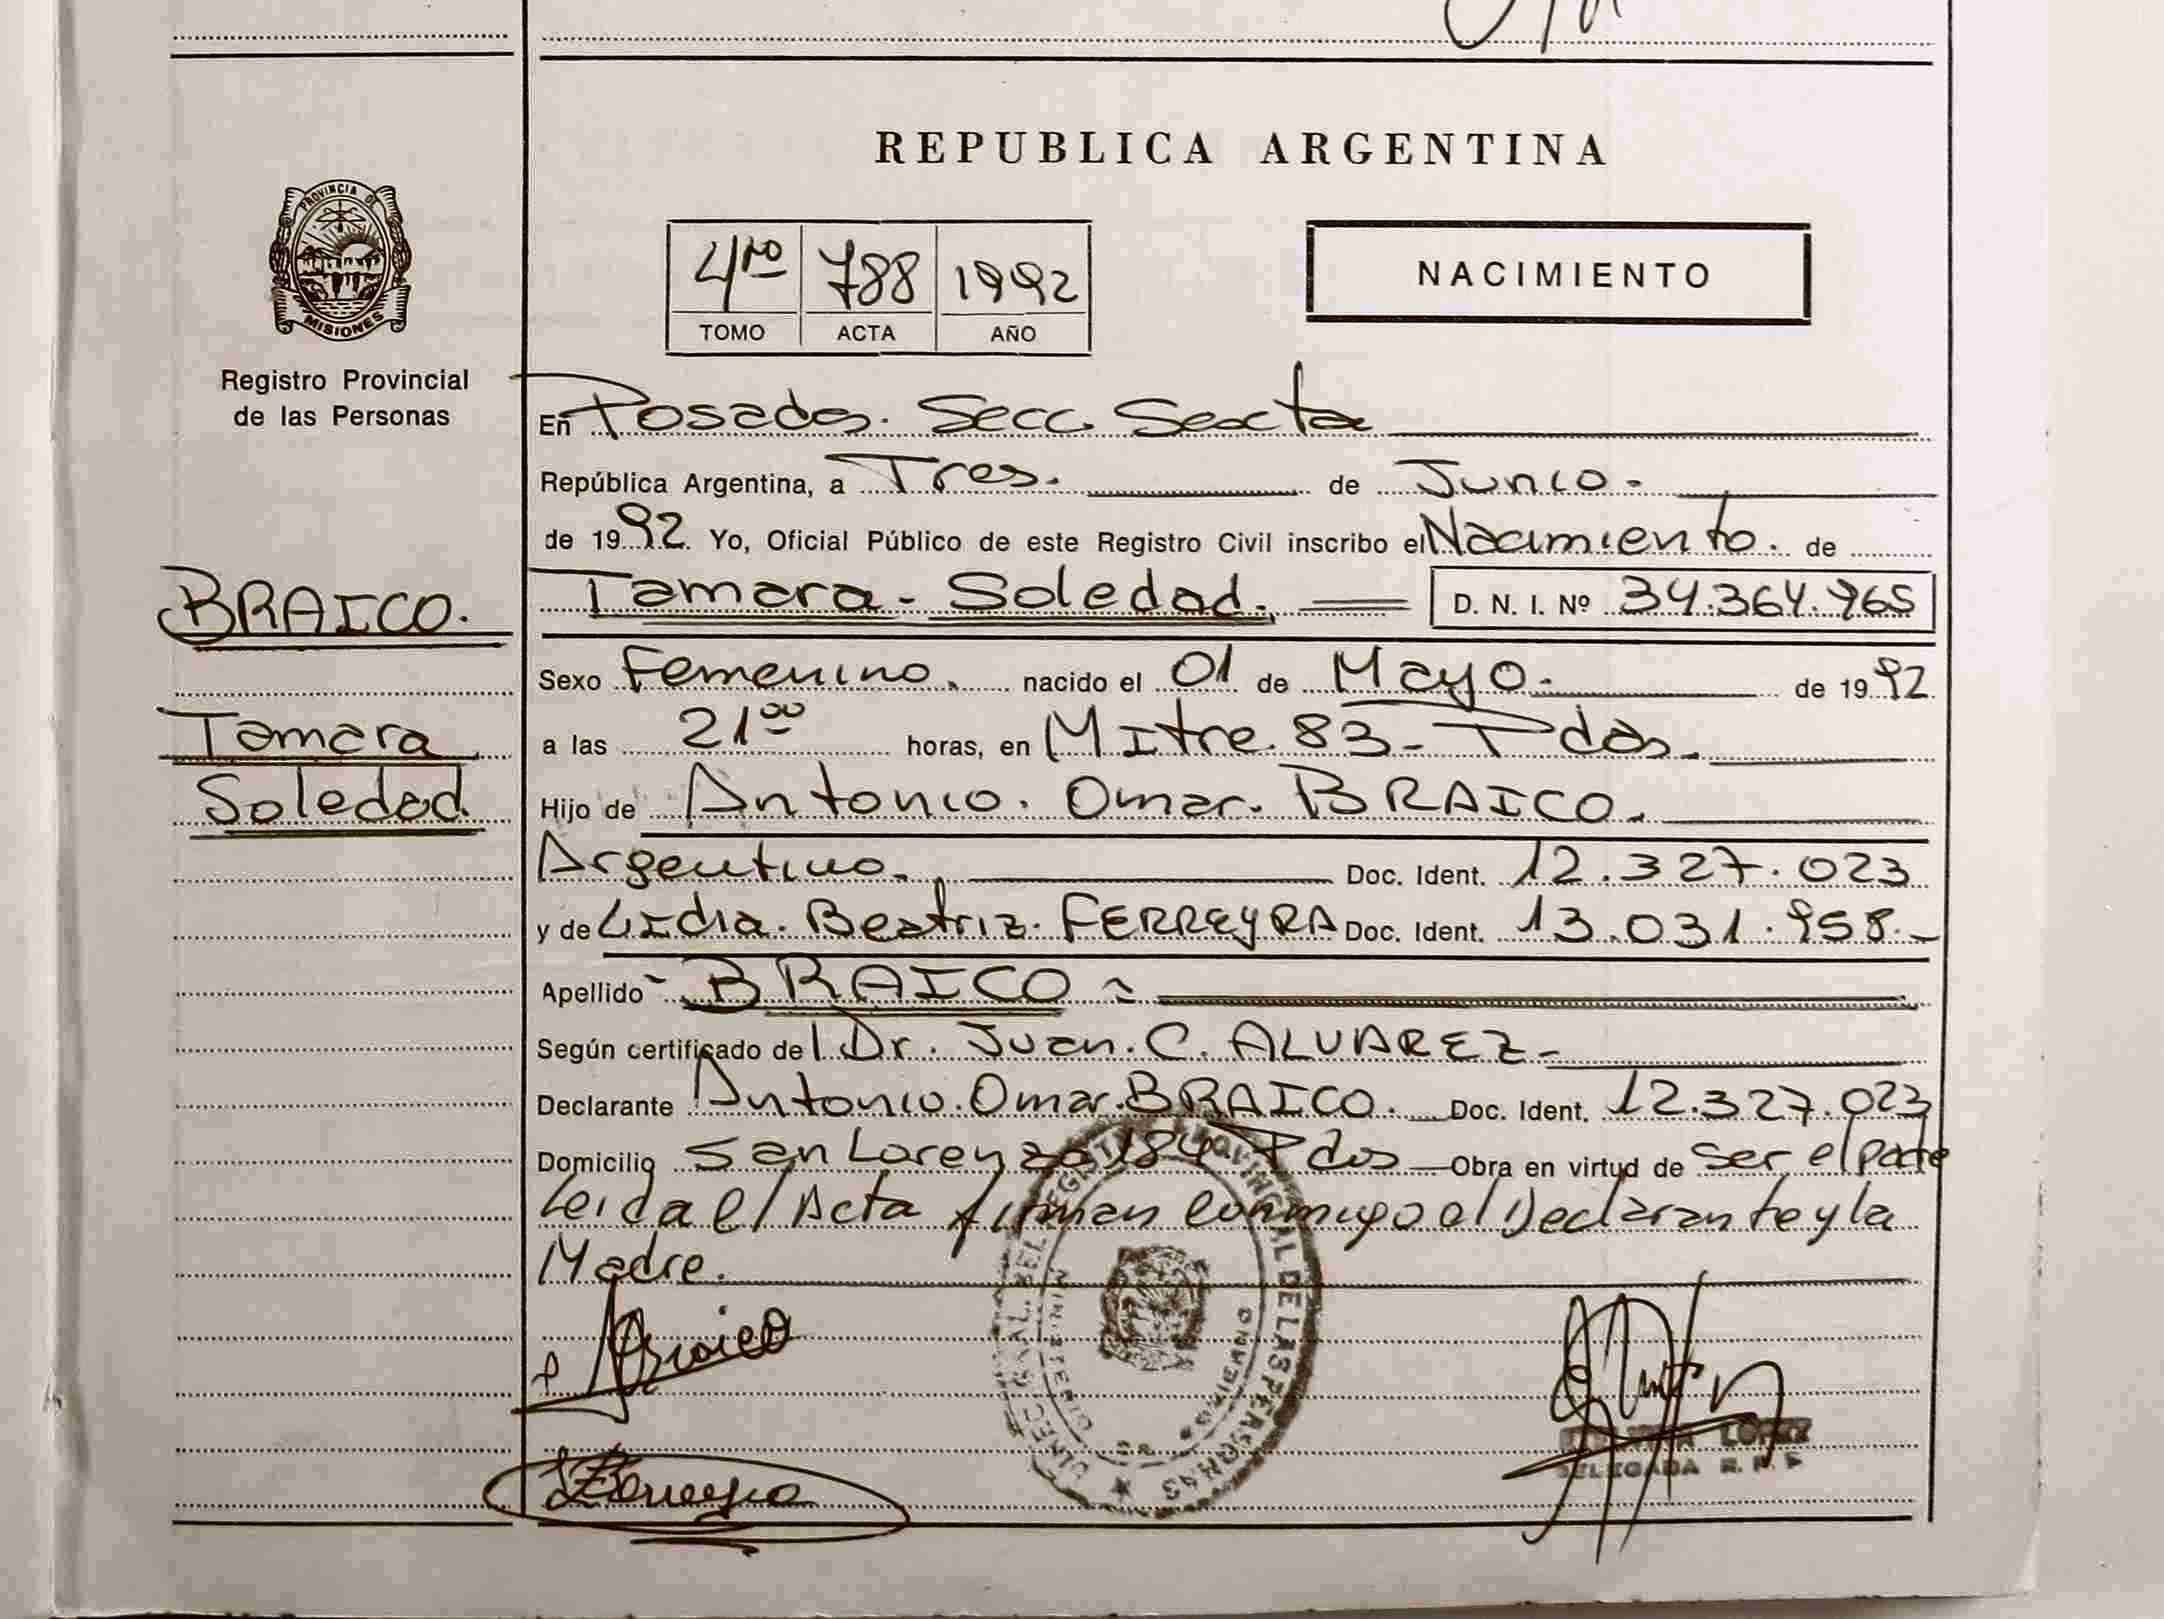 REPUBLICA ARGENTINA
PROVINCIA DE
MISIONES
Registro Provincial
de las Personas
4to 788 1992
TOMO ACTA AÑO
NACIMIENTO
En Posadas. Secc. Sexta
República Argentina, a Tres. de Junio.
de 1992. Yo, Oficial Público de este Registro Civil inscribo el Nacimiento. de
BRAICO.
Tamara
Soledad.
Tamara - Soledad. D. N. I. Nº 34.364.965
Sexo Femenino. nacido el 01 de Mayo. de 1992
a las 21oo horas, en Mitre 83 - Pdas.
Hijo de Antonio. Omar. BRAICO.
Argentino. Doc. Ident. 12.327.023
y de Lidia. Beatriz. FERREYRA Doc. Ident. 13.031.958.-
Apellido - BRAICO -
Según certificado del Dr. Juan. C. ALVAREZ -
Declarante Antonio. Omar. BRAICO. Doc. Ident. 12.327.023
Domicilio San Lorenzo 184 Pdas Obra en virtud de ser el padre
Leida el Acta firman conmigo el Declarante y la
Madre.
ABraico
LBFerreyra
DEL REGISTRO PROVINCIAL DE LAS PERSONAS
MINISTERIO DE GOBIERNO
LOPEZ
DELEGADA R. P. P.